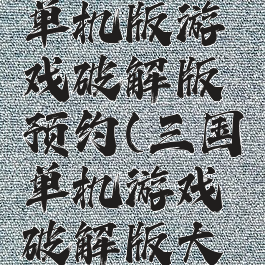 单机版游
戏破解版
预约(三国
单机游戏
破解版大